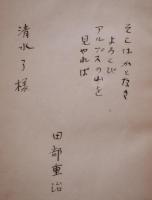 そこはかとなき
よろこび
アルプスの山を
見やれば
田部重治
清水了様